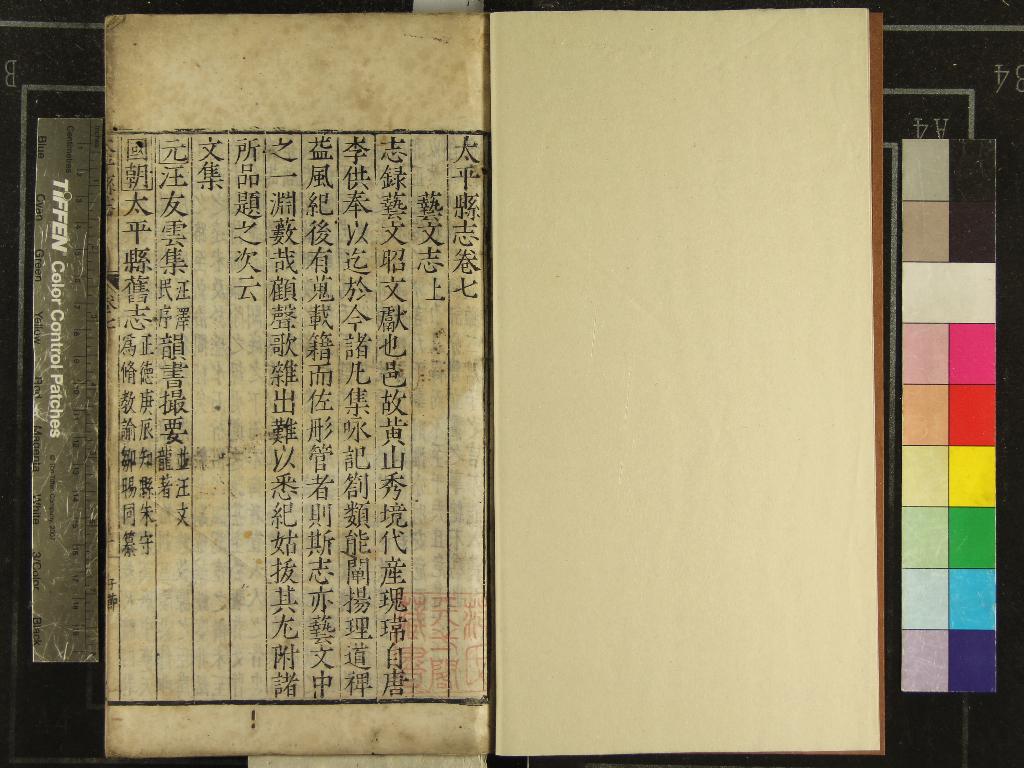 太平縣志卷七
藝文志上
志録藝文昭文獻也邑故黃山秀境代産瑰瑋自唐
李供奉以迄於今諸凡集咏記劄類能闡揚理道裨
益風紀後有蒐載籍而佐彤管者則斯志亦藝文中
之一淵藪哉顧聲歌雜出難以悉紀姑拔其尤附諸
所品題之次云
文集
元汪友雲集 汪澤民序 韻書撮要 並汪文龍著
國朝太平縣舊志 正德庚辰知縣朱守爲脩教諭鄒暘同纂
B
B4
A4
TIFFEN Color Control Patches
Blue
Cyan
Green
Yellow
Red
Magenta
White
3/Color
Black
Centimetres